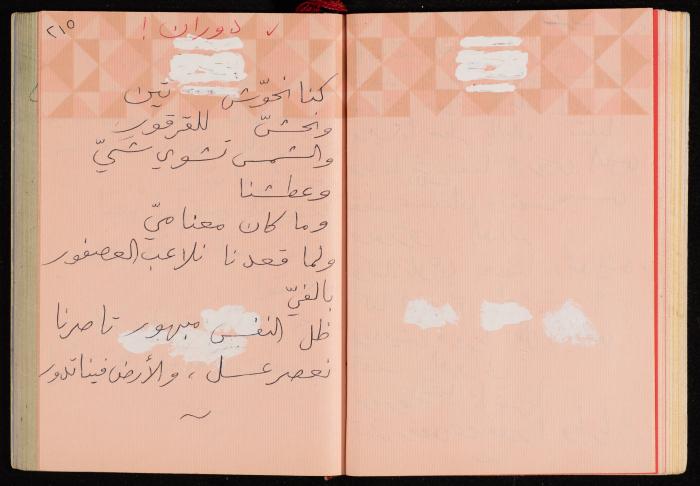 ٢١٥
دوران !
كنا نحوّش تين
ونحشّ للقرقور
والشمس تشوي شيّ
وعطشنا
وما كان معنا ميّ
ولما قعدنا نلاعب العصفور
بالفيّ
ظل النفس مبهور تا صرنا
نعصر عسل، والأرض فينا تدور
~